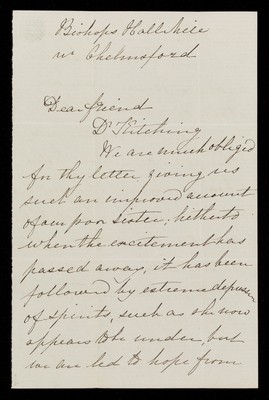 Bishops Hall Mill
nr Chelmsford
Dear friend
Dr Kitching
We are much obliged
for thy letter giving us
such an improved account
of our poor sister; hitherto
when the excitement has
passed away, it has been
followed by extreme depression
of spirits, such as she now
appears to be under, but
we are led to hope from